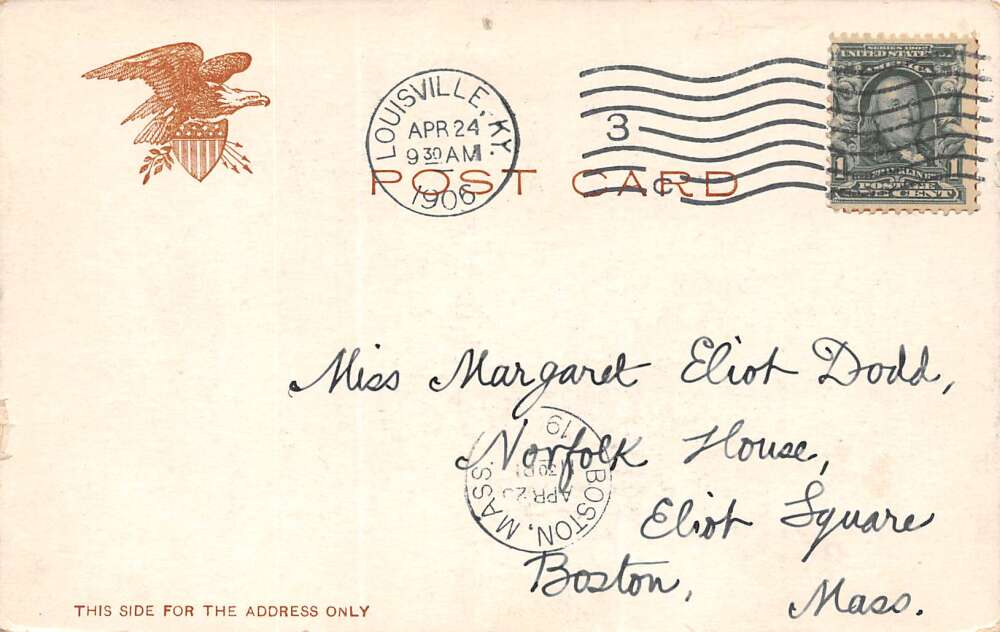 LOUISVILLE, KY.
APR 24
9 30 AM
1906
3
SERIES 1902
UNITED STATES OF
AMERICA
FRANKLIN
1 POSTAGE 1
ONE CENT
POST CARD
Miss Margaret Eliot Dodd,
Norfolk House,
Eliot Square
Boston, Mass.
BOSTON, MASS.
APR 2
30
19
THIS SIDE FOR THE ADDRESS ONLY